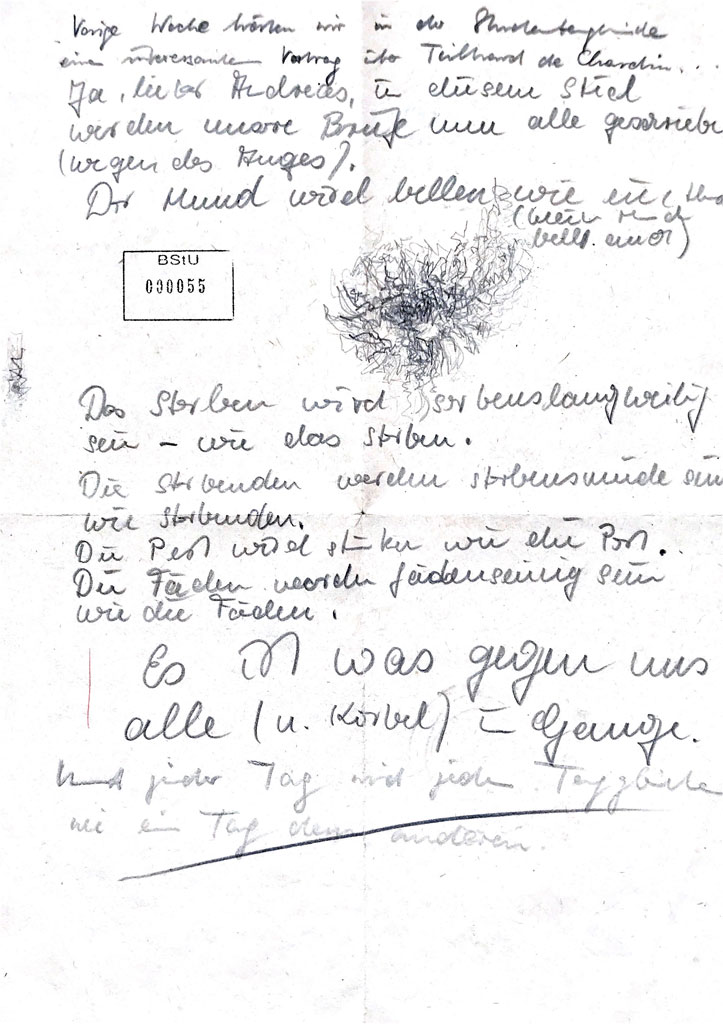 Vorige Woche hörten wir in der Studentengemeinde
einen interessanten Vortrag über Teilhard de Chardin...
Ja, lieber Andreas, in diesem Stiel
werden unsere Briefe nun alle geschrieben
(wegen des Auges).
Der Hund wird bellen wie ein
(kein Hund
bellt.
BStU
000055
Das Sterben wird sterbenslangweilig
sein – wie das Sterben.
Die Sterbenden werden sterbensmüde sein
wie Sterbenden.
Die Pest wird stinken wie die Pest.
Die Fäden werden fadenseinig sein
wie die Fäden.
Es ist was gegen uns
alle (u. Körbel) in Gange.
Und jeder Tag wird jedem Tag
wie ein Tag dem anderen.